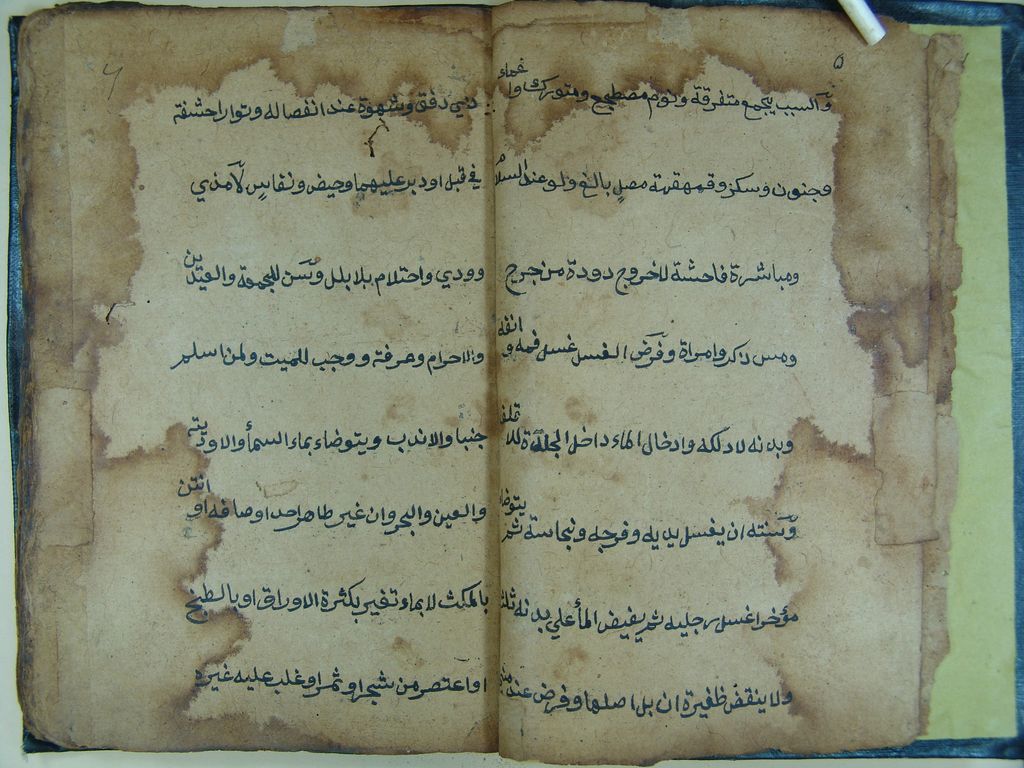 ٥
والسبب يجمع متفرقه ونوم مصطجع ومتورك واغماء
وجنون وسكر وقهقهة مصلٍ بالغ ولو عند السلام
ومباشرة فاحشة لاخروج دودة من جرح
ومس ذكر وامراة وفَرَض الغسل غسل فمه وانفه
وبدنه لادلكه وادخال الماء داخل الجلدة للاقلف
وسنته ان يغسل يديه وفرجه ونجاسة ثم يتوضا
مؤخرا غسل رجليه ثم يفيض المأ علي بدنه ثلثا
ولا ينقض ظفيرة ان بل اصلها وفرض عند مني
٦
ذي دفق وشهوة عند انفصاله وتوارا حشفة
في قبل او دبر عليهما وحيض ونفاسٍ لا مذي
وودي واحتلام بلا بلل وسن للجمعة والعيدين
والاحرام وعرفة ووجب للميت ولمن اسلم
جنبا والا ندب ويتوضاء بماء السمأ والاودية
والعين والبحر وان غير طاهر احد اوصافه او انتن
بالمكث لا بماء تغير بكثرة الاوراق او بالطبخ
او اعتصر من شجر او ثمر او غلب عليه غيره